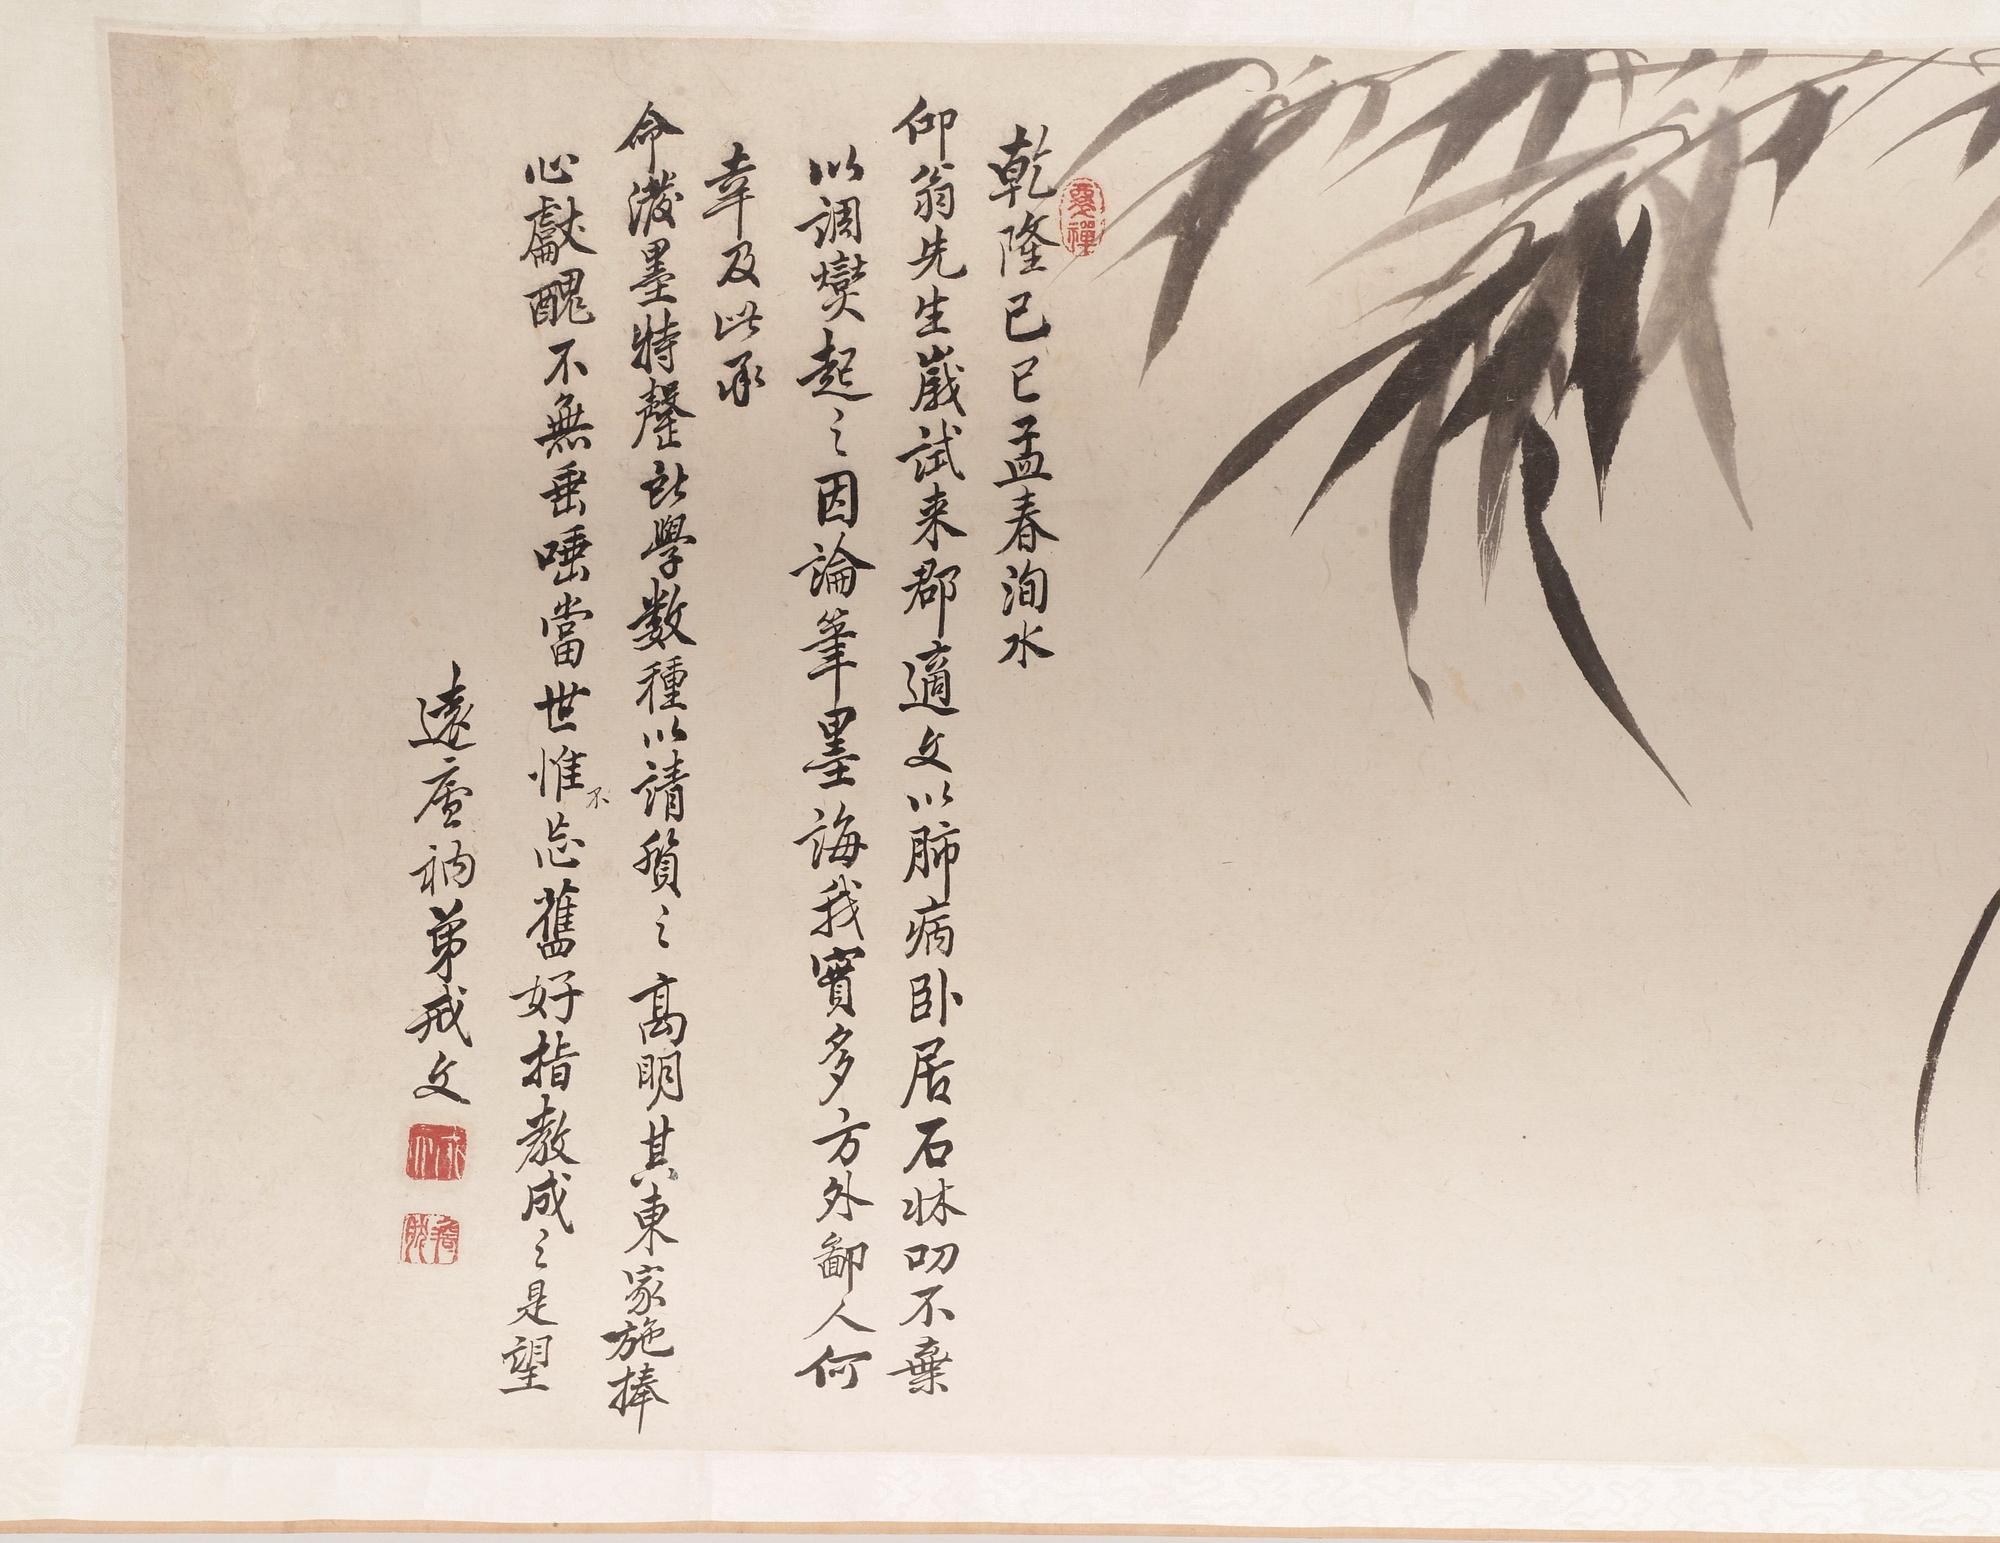 乾隆己巳孟春洵水
仰翁先生歲試来郡適文以肺病卧居石牀叨不棄
以調爕起之因論筆墨誨我實多方外鄙人何
幸及此承
命潑墨特罄所學数種以請質之高明其東家施捧
心獻醜不無垂唾當世惟不忘舊好指教成之是望
遠廬衲弟戒文